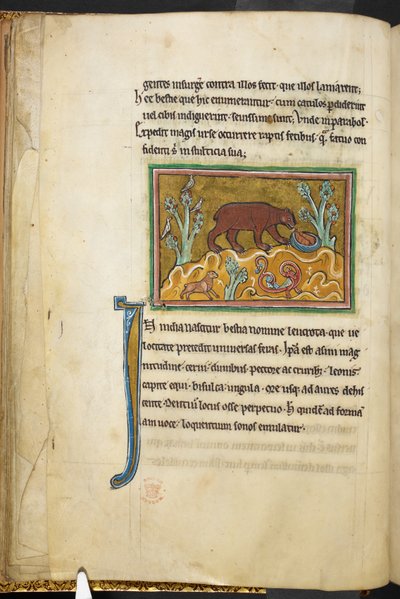 gentes insurgẽt contra illos fecit · que illos laniarent;
Hee bestie que hic enumerantur · cum catulos p̱diderint
uel cibis indiguerint · seuissime sunt; Unde in parabol̃
Expedit magis urse occurrere raptis fetibus · q̃m fatuo con
fidenti s̃ in stulticia sua;
In india nascitur bestia nomine leucrota · que ue
locitate precedit uniuersas feras · Ip̃a est asini mag
nitudine · cerui clunibus · pectore ac cruribʒ leonis
capite equi · bisulca ungula · ore usqʒ ad aures dehis
cente · Dentiũ locus osse perpetuo · H̃ quidẽ ad formã
nam uoce · loquentium sonos emulatur ·